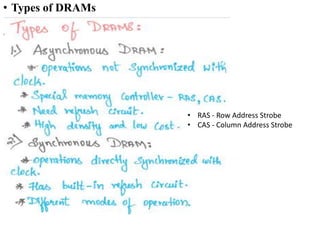 • Types of DRAMs
Types of DRAMS:
1.) Asynchronous DRAM:
* operations not synchronized with
clock.
* Special memory controller - RAS, CAS.
* Need refresh circuit.
* High density and low cost.
• RAS - Row Address Strobe
• CAS - Column Address Strobe
2) Synchronous DRAM:
* operations directly synchronized with
clock.
* Has built-in refresh circuit.
* Different modes of operation.